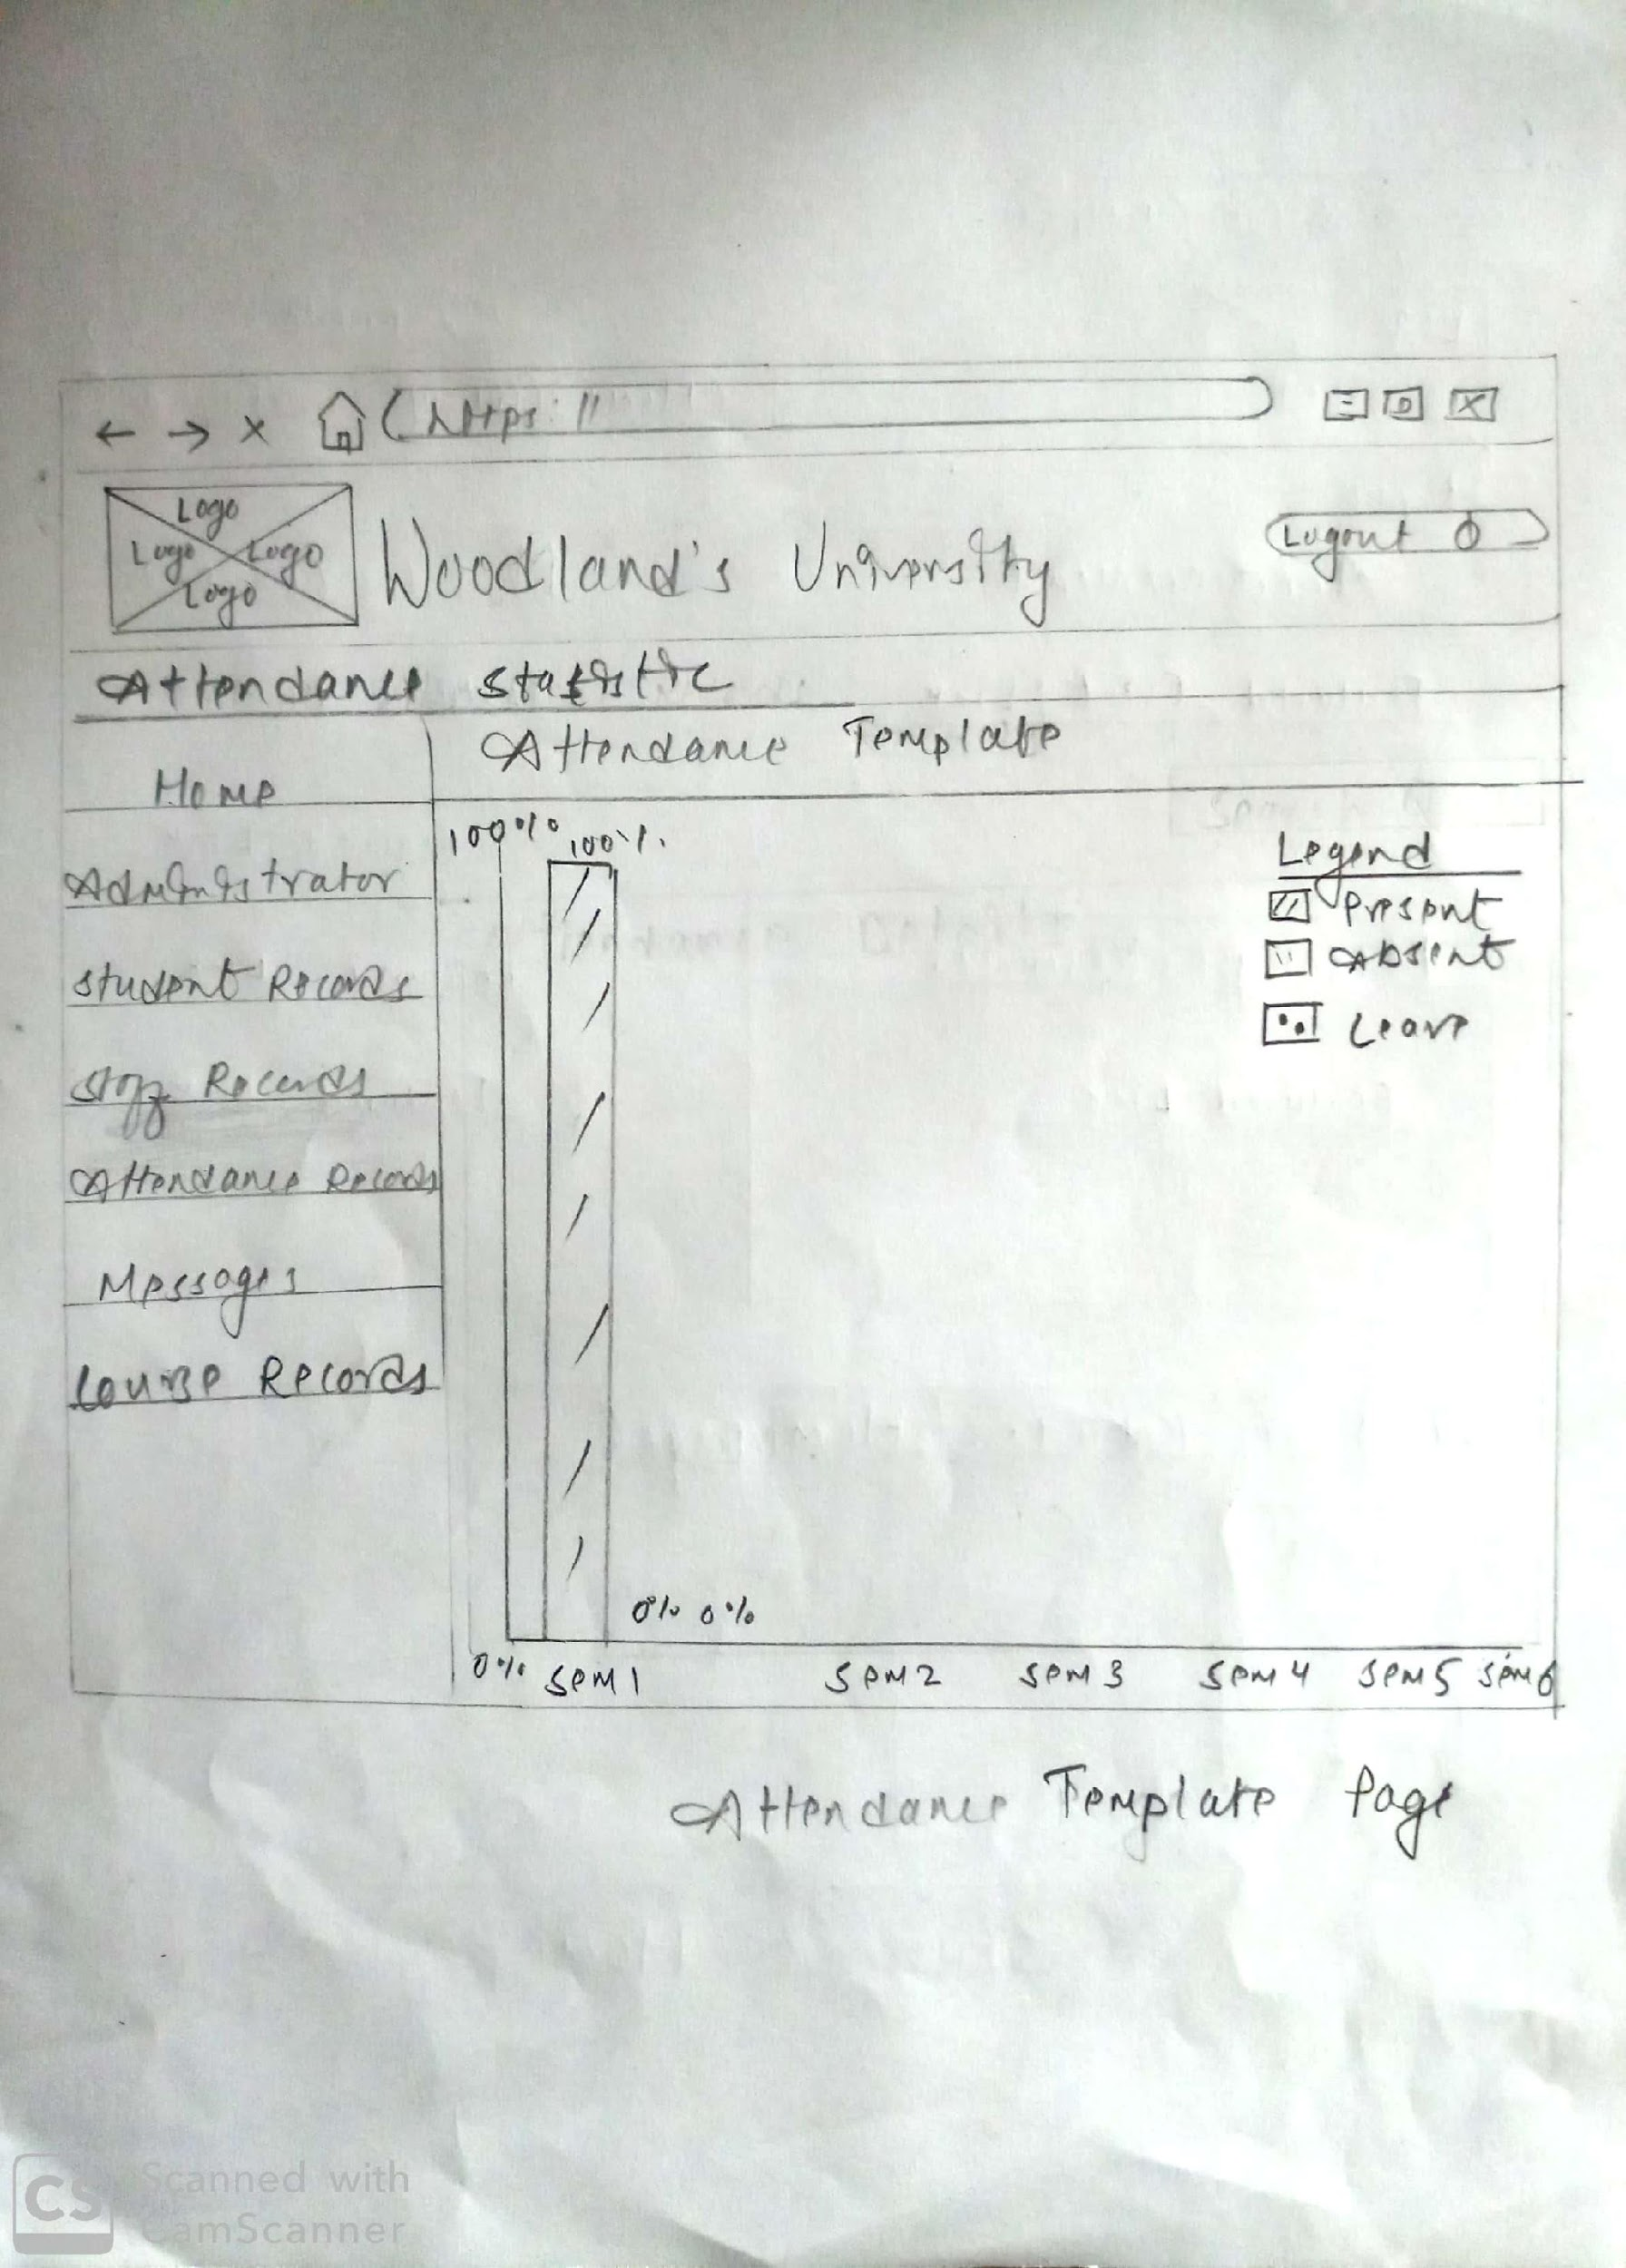 https://
Logo
Logo Logo
Logo
Woodland's University
Logout
Attendance Statistic
Attendance Template
Home
Administrator
Student Records
Staff Records
Attendance Records
Messages
Course Records
100%
100%
Legend
Present
Absent
Leave
0% 0%
0%
Sem 1
Sem 2
Sem 3
Sem 4
Sem 5
Sem 6
Attendance Template Page
CS
Scanned with
CamScanner